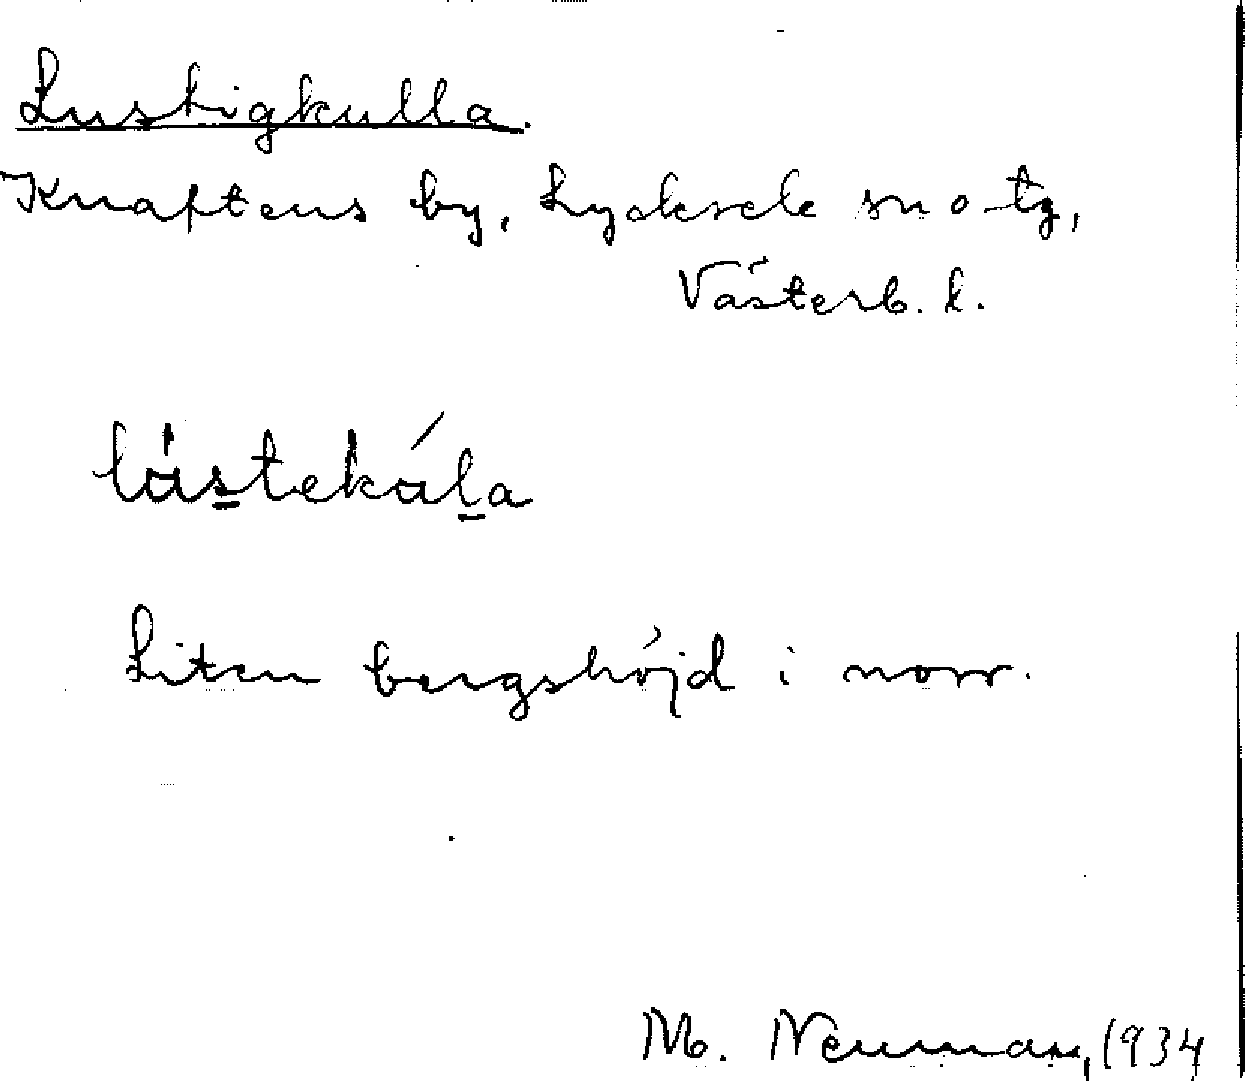 Lustigkulla.
Knaftens by, Lycksele sn o tg,
Västerb. l.
lústekúla
Liten bergshöjd i norr.
M. Neuman, 1934